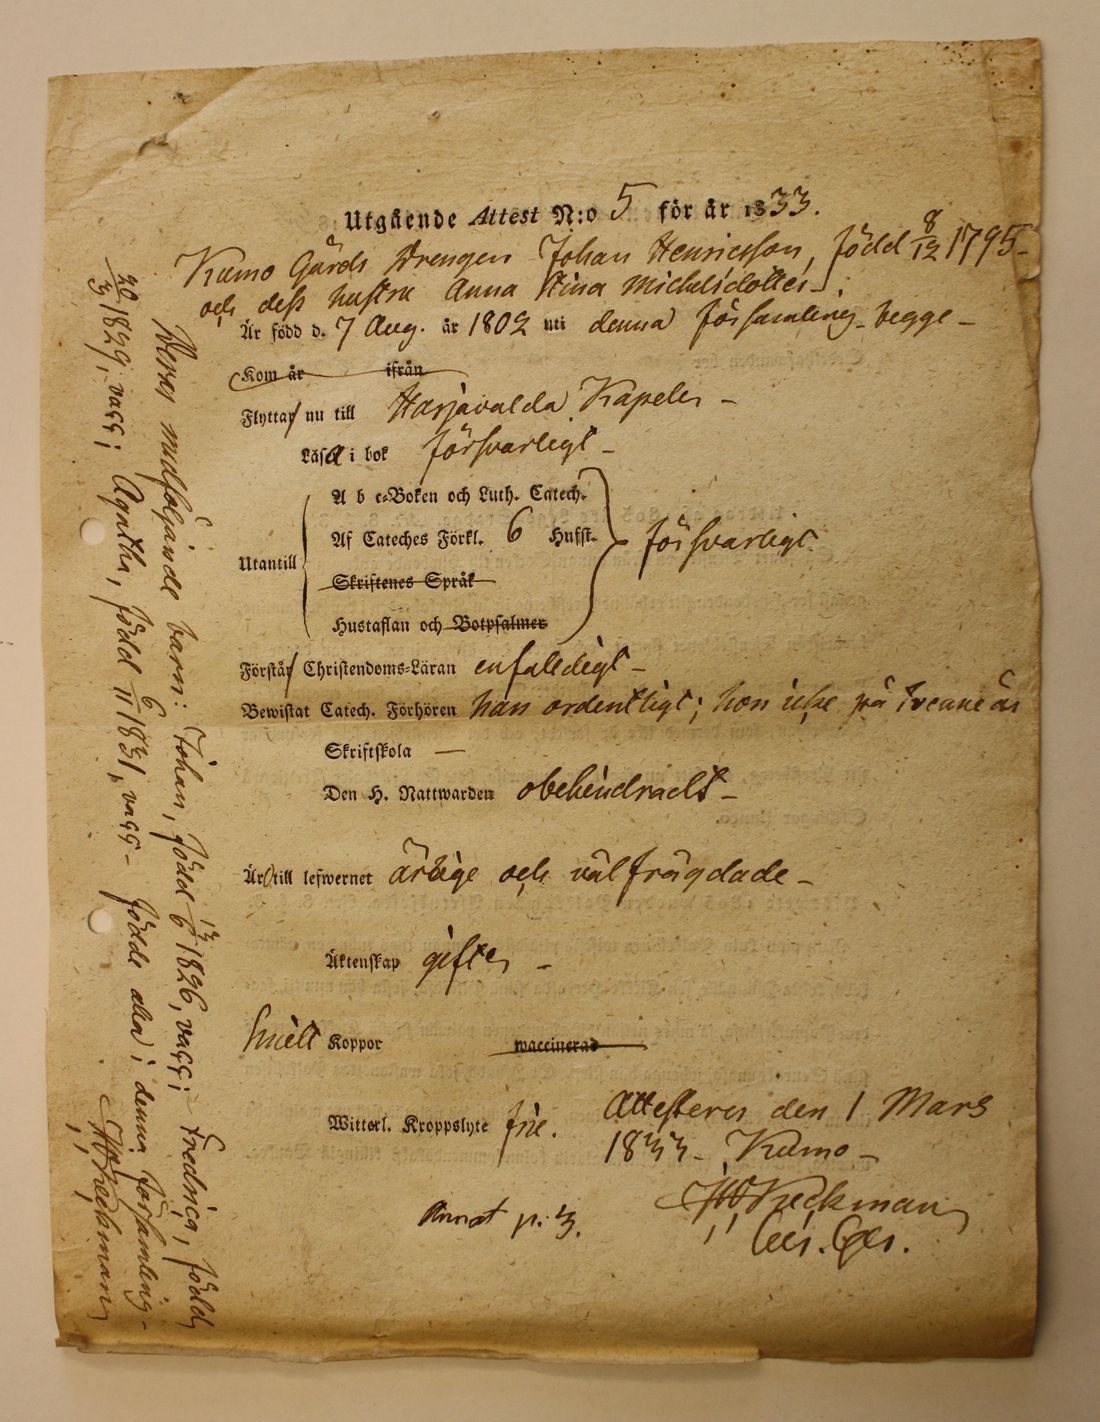 Utgående Attest N:o 5 för år 1833.
Kumo Gårds Drengen Johan Henricsson, född 8/12 1795
och dess hustru Anna Stina Michelsdotter
Är född d. 7 Aug. år 1802 uti denna församling begge
Kom år ifrån
Flyttar nu till Harjavalda Kapele
Läsa i bok försvarligt
A b c-Boken och Luth. Catech.
Af Cateches Förkl. 6 Hufst. försvarligt
Utantill
Skriftenes Språk
Hustaflan och Botpsalmer
Förstår Christendoms-Läran enfaldigt
Bewistat Catech. Förhören han ordentligt; hon icke på trenne år
Skriftskola —
Den H. Nattwarden obehindradt
Är till lefwernet ärlige och väl frägdade
Äktenskap gifte
Koppor waccinerad
Witterl. Kroppslyte frie.
Attesteres den 1 Mars
1833 Kumo
Keckman
Annot p. 3.
Deras medföljande barn: Johan, född 13/6 1826, vacc; Fredrica, född
20/3 1829, vacc; Agatha, född 6/11 1831, vacc födde alla i denna församling
Keckman